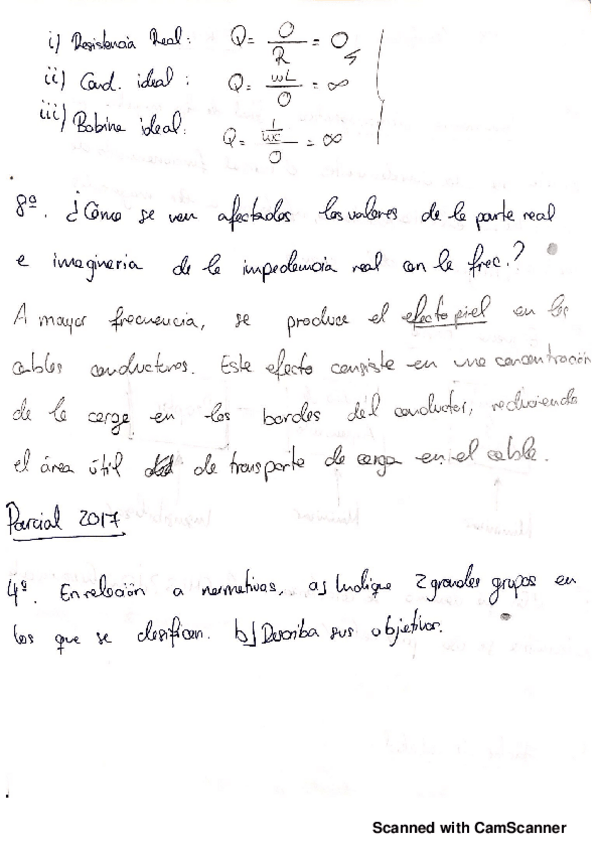 i) Resistencia Real: Q = 0/R = 0
ii) Cond. ideal: Q = ωL/0 = ∞
iii) Bobina ideal: Q = (1/ωc)/0 = ∞
8º. ¿Cómo se ven afectados los valores de la parte real
e imaginaria de la impedancia real con la frec.?
A mayor frecuencia, se produce el efecto piel en los
cables conductores. Este efecto consiste en una concentración
de la carga en los bordes del conductor, reduciendo
el área útil de transporte de carga en el cable.
Parcial 2017
4º. En relación a normativas, a) Indique 2 grandes grupos en
los que se clasifican. b) Describa sus objetivos.
Scanned with CamScanner